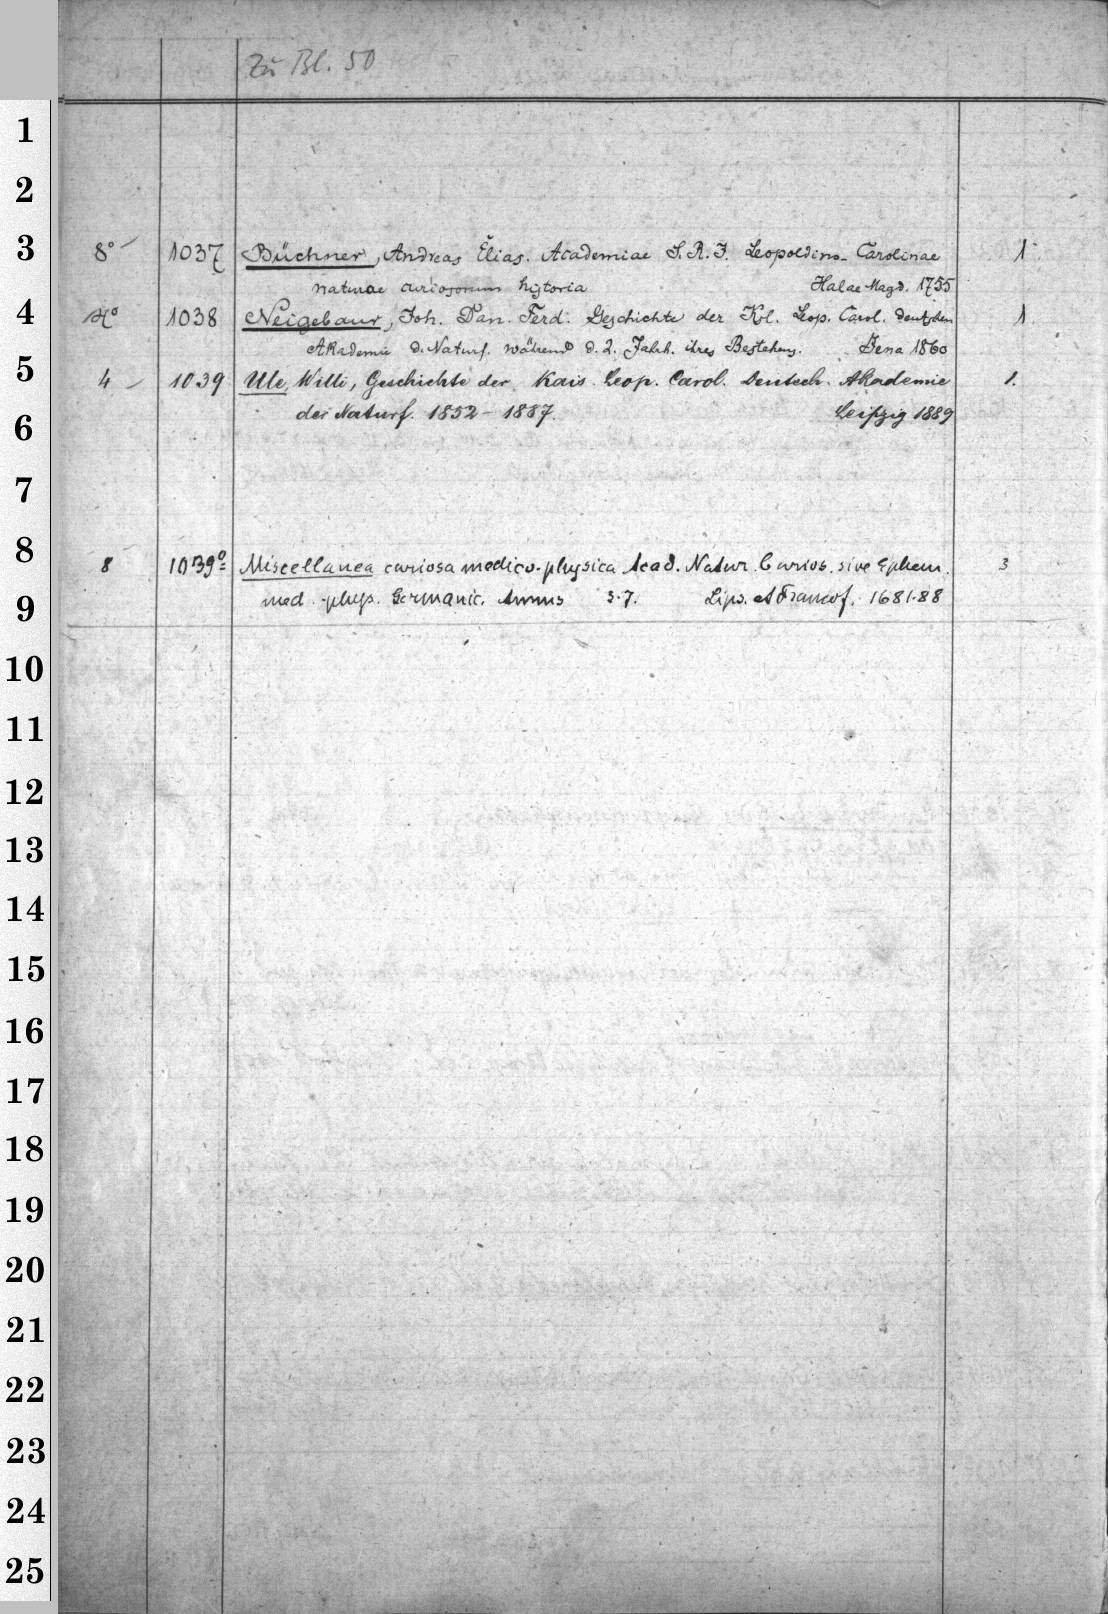 Zu Bl. 50
1
2
3 8° 1037 Büchner, Andreas Elias. Academiae S. R. I. Leopoldino-Carolinae 1
naturae curiosorum historia Halae Magd. 1755
4 1038 Neigebaur, Joh. Dan. Ferd. Geschichte der Ksl. Leop. Carol. deutschen 1
Akademie d. Naturf. während d. 2. Jahrh. ihres Bestehens. Jena 1860
5 4 1039 Ule, Willi, Geschichte der Kais. Leop. Carol. Deutsch. Akademie 1.
6 der Naturf. 1852-1887. Leipzig 1889
7
8 8 1039 Miscellanea curiosa medico-physica Acad. Natur. Curios. sive Ephem. 3
9 med.-phys. Germanic. Annus 3-7. Lips. et Francof. 1681-88
10
11
12
13
14
15
16
17
18
19
20
21
22
23
24
25